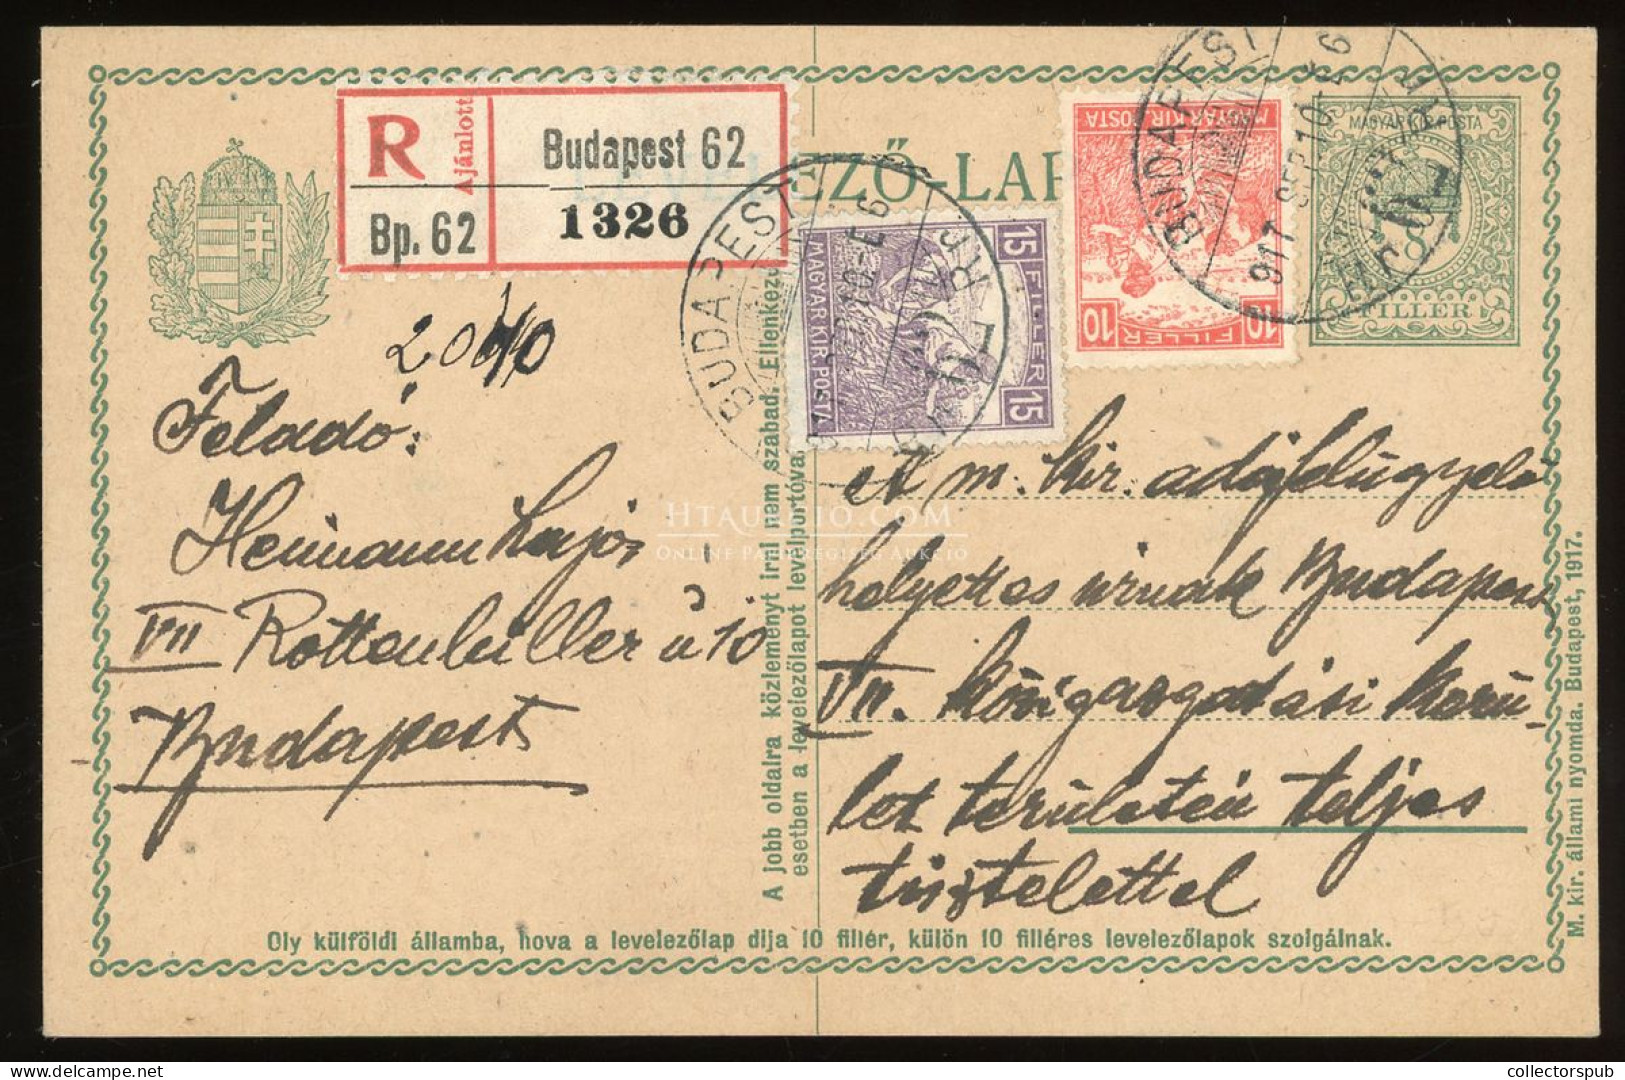 R
Ajánlott
Budapest 62
Bp. 62
1326
LEVELEZŐ-LAP
MAGYAR KIR. POSTA
10 FILLER 10
MAGYAR KIR. POSTA
8
FILLER
15 FILLER 15
MAGYAR KIR. POSTA
BUDAPEST
917 SEP. 10-E6
BUDAPEST
10-E6
Feladó:
Heimann Lajos
VII Rottenbiller u 10
Budapest
A m. kir. adófelügyelő
helyettes úrnak Budapest
VII. közigazgatási kerü-
let területén teljes
tisztelettel
A jobb oldalra közleményt irni nem szabad. Ellenkező
esetben a levelezőlapot levélportóval
Oly külföldi államba, hova a levelezőlap dija 10 fillér, külön 10 filléres levelezőlapok szolgálnak.
M. kir. állami nyomda. Budapest, 1917.
HTAUKCIO.COM
ONLINE PAPÍRRÉGISÉG AUKCIÓ
collectorspub